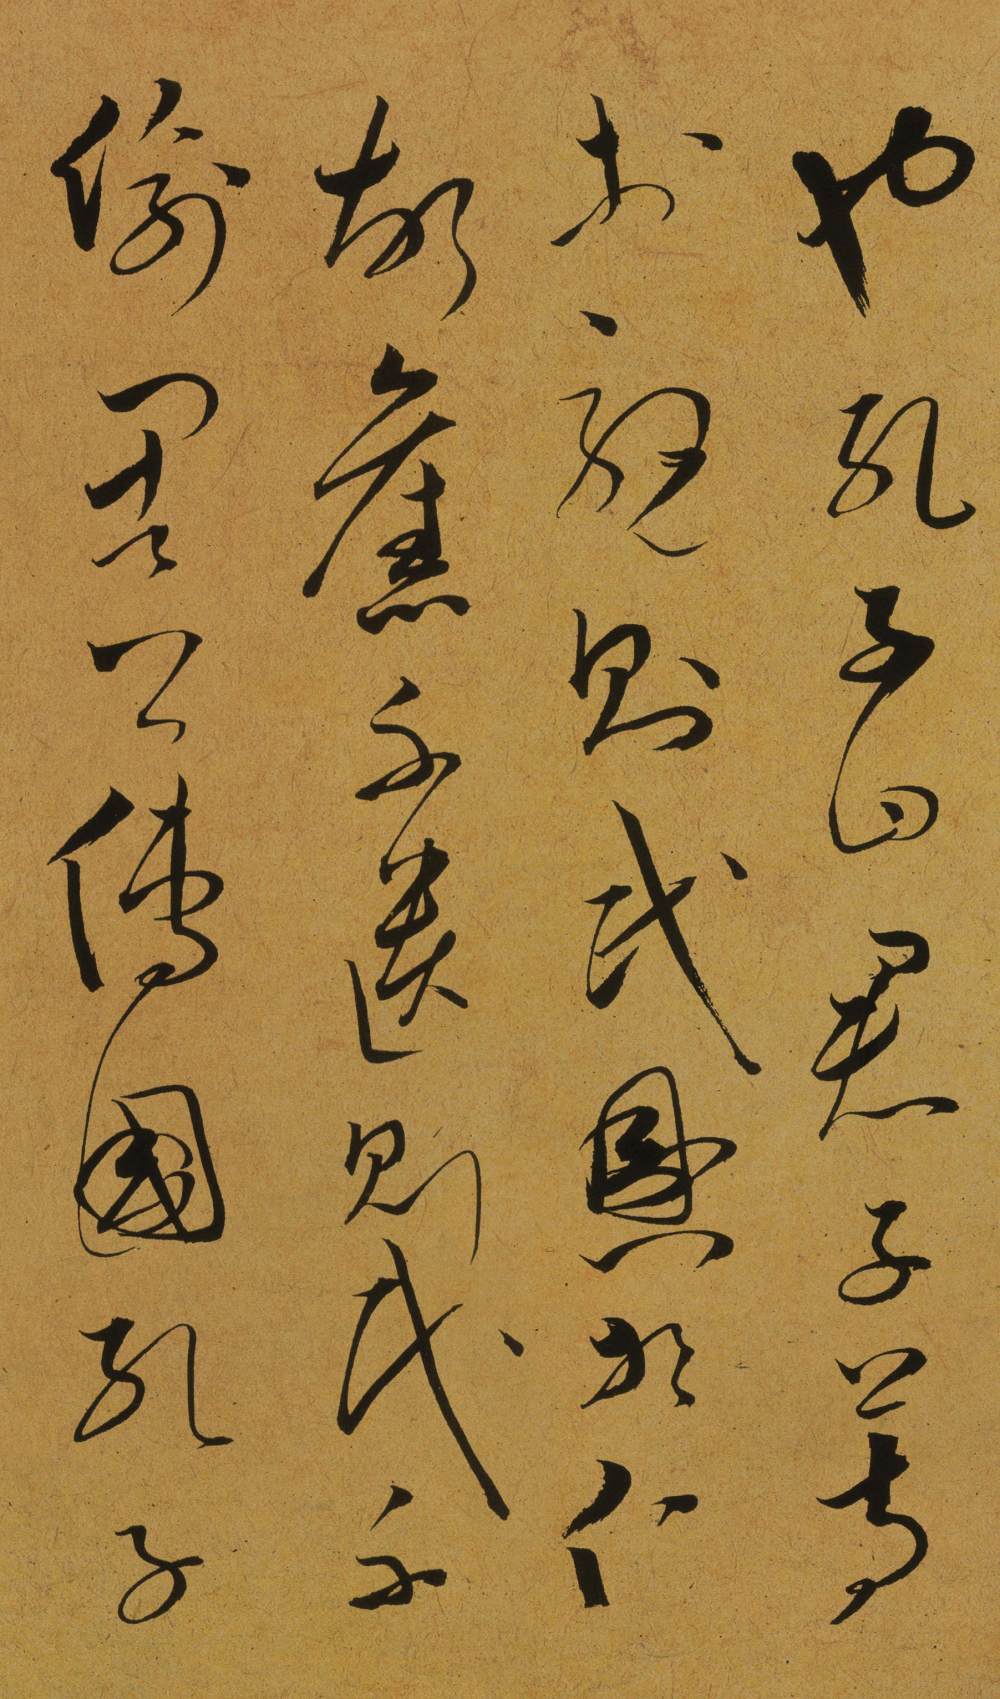 也孔子曰君子篤
於親則民興於仁
故舊不遺則民不
偷周公傳國孔子